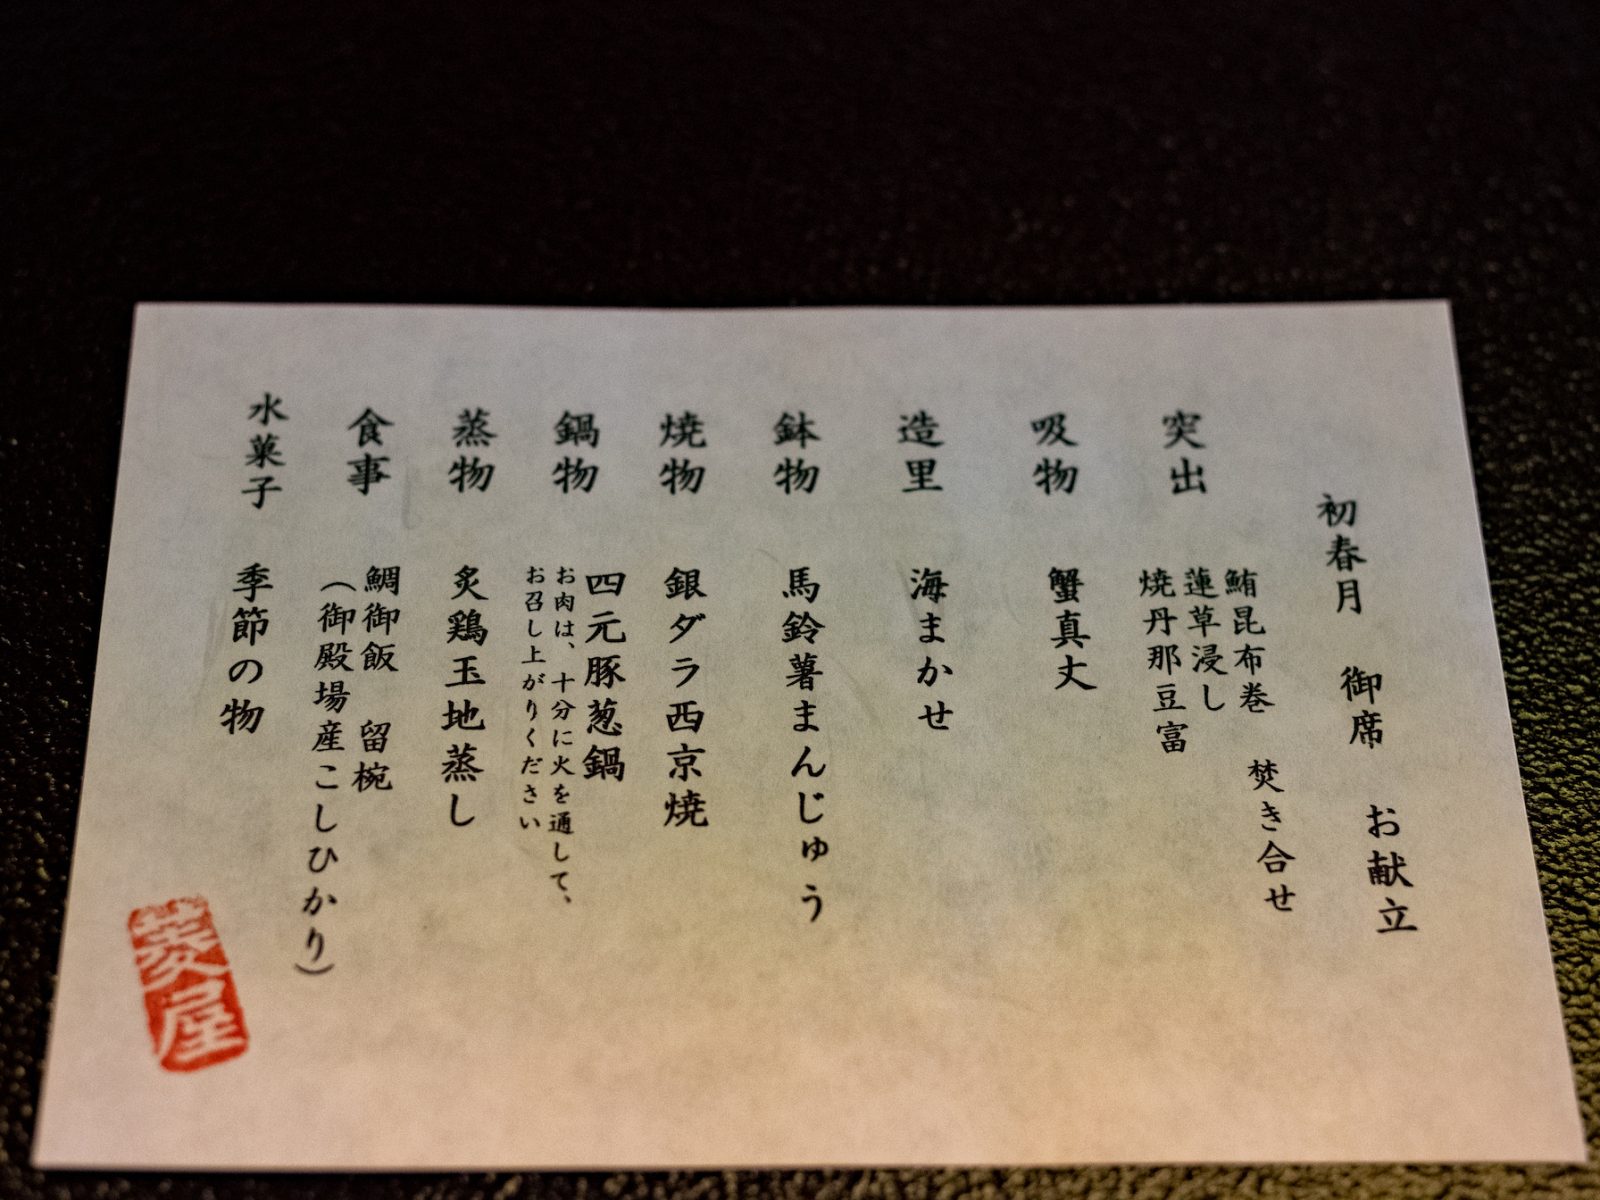 初春月　御席　お献立
突出　鮪昆布巻　焚き合せ
蓮草浸し
焼丹那豆富
吸物　蟹真丈
造里　海まかせ
鉢物　馬鈴薯まんじゅう
焼物　銀ダラ西京焼
鍋物　四元豚葱鍋
お肉は、十分に火を通して、
お召し上がりください
蒸物　炙鶏玉地蒸し
食事　鯛御飯　留椀
（御殿場産こしひかり）
水菓子　季節の物
菱屋